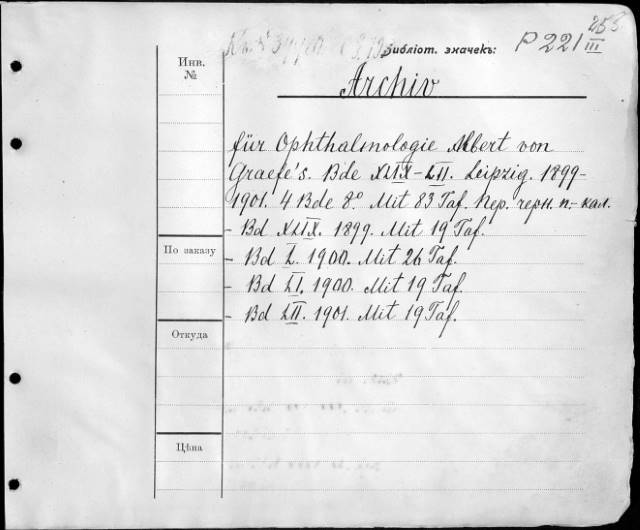 Библіот. значекъ: P 221 III
Инв.
№
Archiv
für Ophthalmologie Albert von
Graefe's. Bde XLIX-LII. Leipzig. 1899-
1901. 4 Bde 8.° Mit 83 Taf. Пер. черн. п.-кал.
- Bd XLIX. 1899. Mit 19 Taf.
По заказу
- Bd L. 1900. Mit 26 Taf.
- Bd LI. 1900. Mit 19 Taf.
- Bd LII. 1901. Mit 19 Taf.
Откуда
Цѣна